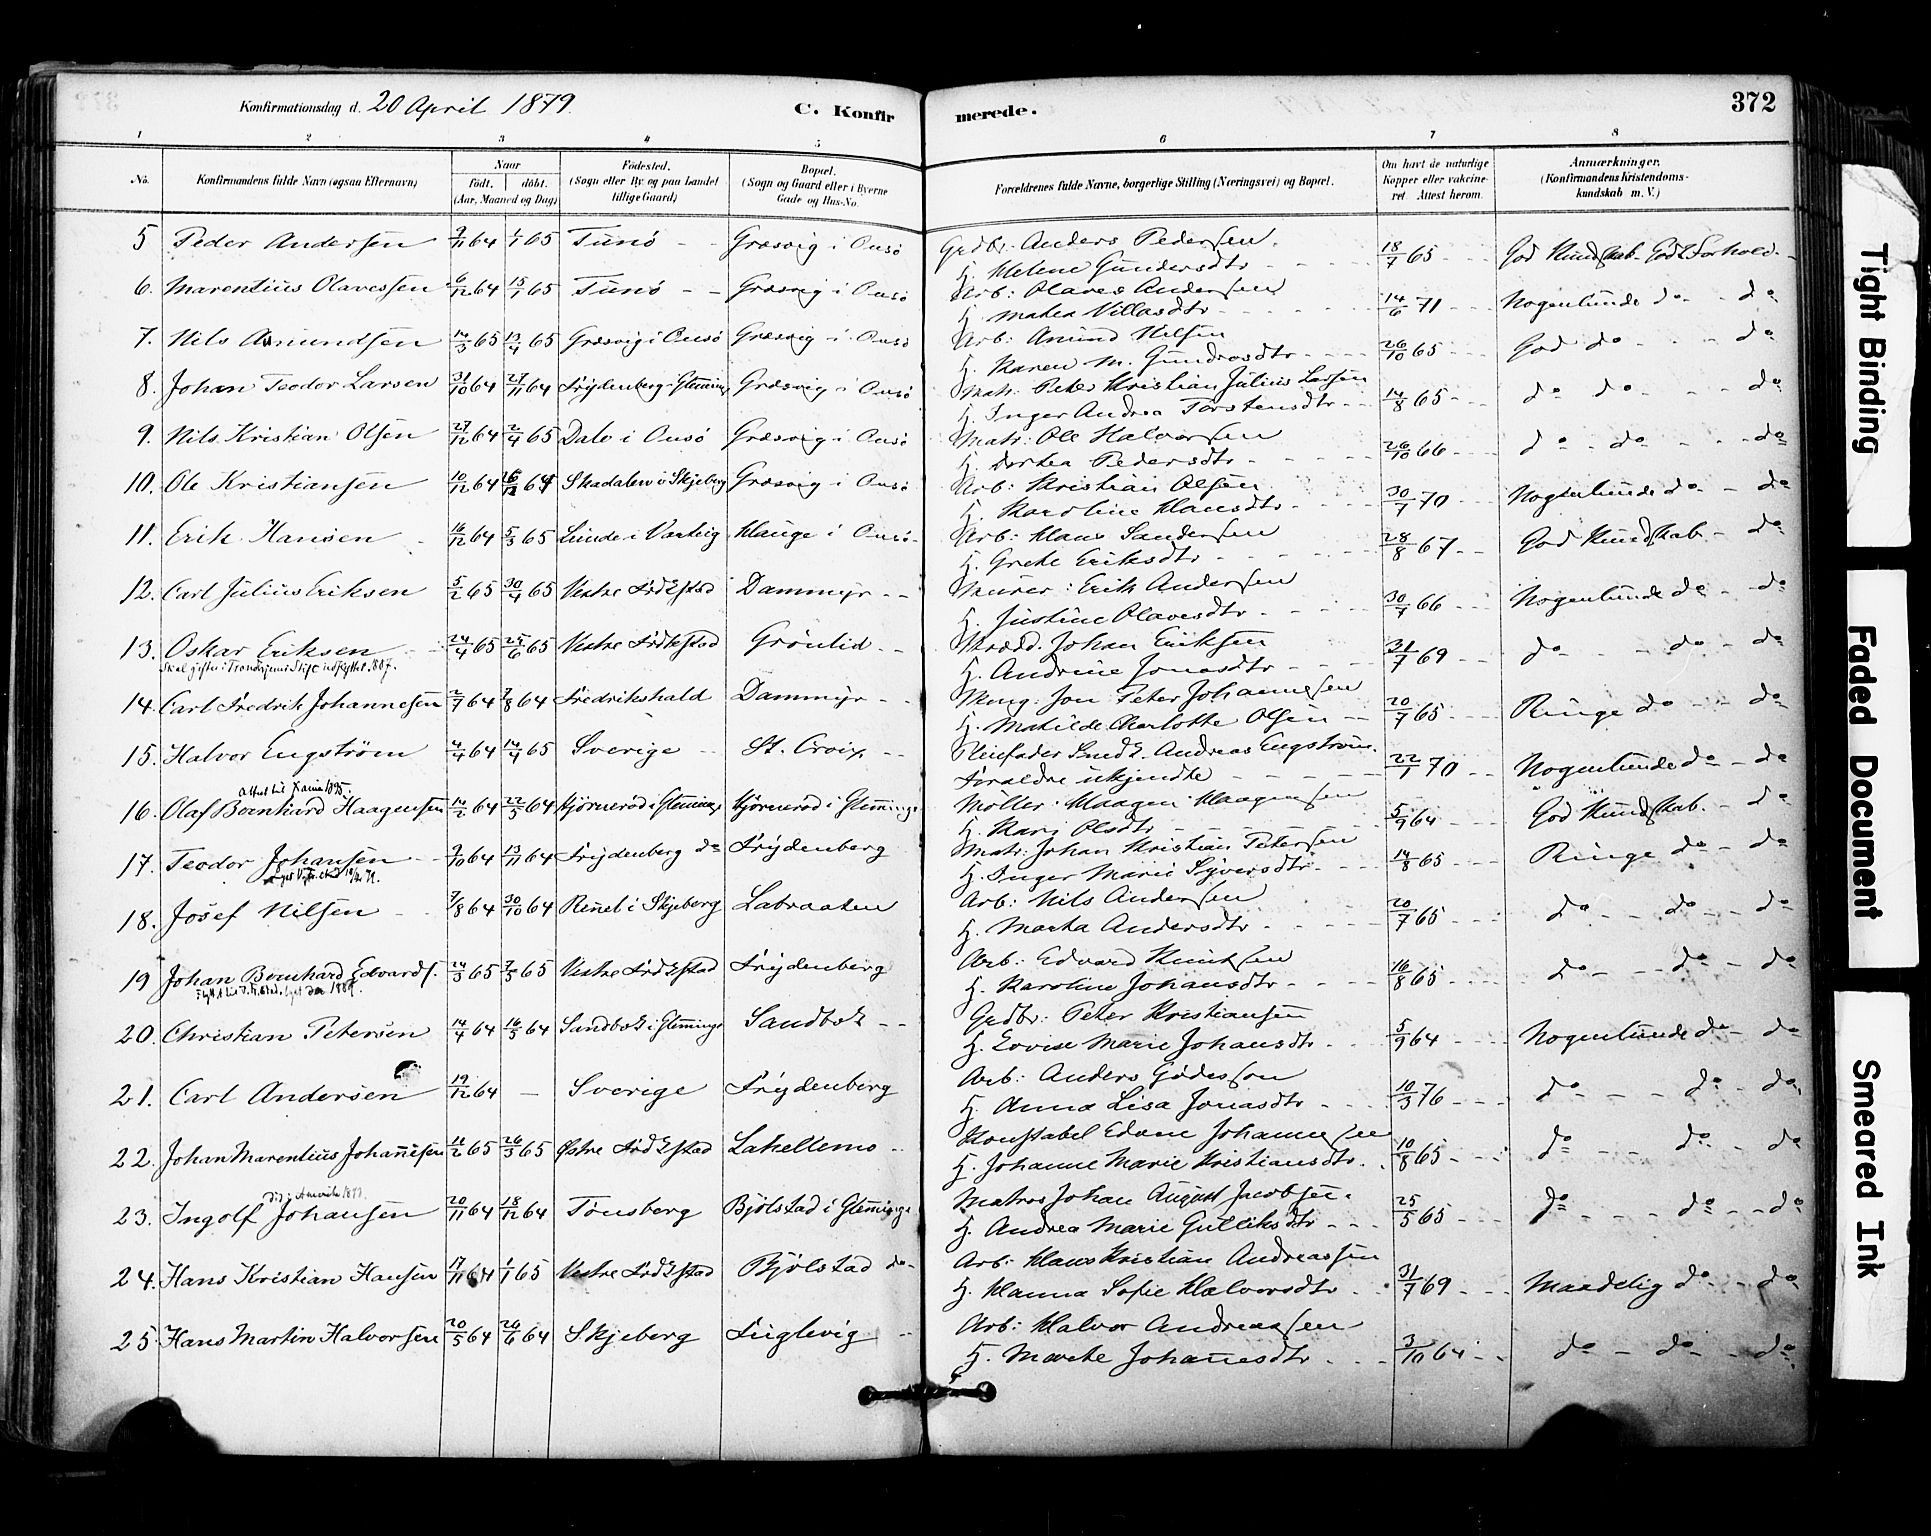 Konfirmationsdag d. 20 April 1879. C. Konfirmerede. 372
1 2 3 4 5 6 7 8
No. Konfirmandens fulde Navn (ogsaa Efternavn) Naar født. døbt. (Aar, Maaned og Dag) Fødested. (Sogn eller By og paa Landet tillige Gaard) Bopæl. (Sogn og Gaard eller i Byerne Gade og Hus-No. Forældrenes fulde Navne, borgerlige Stilling (Næringsvei) og Bopæl. Om havt de naturlige Kopper eller vakcineret Attest herom. Anmærkninger. (Konfirmandens Kristendomskundskab m. V.)
5 Peder Andersen 9/11 64 1/1 65 Tunø Græsvig i Onsø Grdbr: Anders Pedersen. H. Helene Gundersdtr 18/7 65 God Kundskab God Forhold
6. Marentius Olavessen 6/12 64 15/1 65 Tunø Græsvig i Onsø Arb: Olaves Andersen H. Mathea Villasdtr 14/6 71 Nogenlunde do do
7. Nils Amundsen 14/3 65 13/4 65 Græsvig i Onsø Græsvig i Onsø Arb: Amund Nilsen H. Karen M. Gundrosdtr 26/10 65 God do do
8. Johan Teodor Larsen 31/10 64 27/11 64 Frydenberg i Glemminge Græsvig i Onsø Matr: Peter Kristian Julius Larsen H. Inger Andrea Torstensdtr 14/8 65 do do do
9. Nils Kristian Olsen 27/12 64 2/4 65 Dale i Onsø Græsvig i Onsø Matr: Ole Halvorsen H. Dorthea Pedersdtr 26/10 66 do do do
10. Ole Kristiansen 10/12 64 26/12 64 Skadalen i Skjeberg Græsvig i Onsø Arb: Kristian Olsen H. Karoline Hansdtr 30/7 70 Nogenlunde do do
11. Erik Hansen 16/12 64 5/3 65 Lunde i Varteig Hauge i Onsø Arb: Hans Sandersen H. Grethe Eriksdtr 28/8 67 God Kundskab do
12. Carl Julius Eriksen 5/2 65 30/4 65 Vestre Fredrikstad Dammyr Murer: Erik Andersen H. Justine Olavesdtr 30/7 66 Nogenlunde do do
13. Oskar Eriksen 24/4 65 25/6 65 Vestre Fredrikstad Grønlid Skrædd. Johan Eriksen H. Andrine Jonasdtr 31/7 69 do do do
Skal giftes i Trondhjems Stift
14. Carl Fredrik Johannesen 2/7 64 7/8 64 Fredrikshald Dammyr Jon Peter Johannesen H. Mathilde Charlotte Olsen 20/7 65 Ringe do do
15. Halvor Engstrøm 4/4 64 14/4 65 Sverige St. Croix Pleiefader Andreas Engstrøm. Foreldre ukjendte 22/1 70 Nogenlunde do do
16. Olaf Bernhard Haagensen 14/2 64 22/5 64 Bjørnerød i Glemminge Bjørnerød i Glemminge Møller: Haagen Haagensen H. Kari Olsdtr 5/9 64 God Kundskab do
17. Teodor Johansen 9/10 64 13/11 64 Frydenberg do Frydenberg Matr: Johan Kristian Petersen H. Inger Marie Syversdtr 14/8 65 Ringe do do
18. Josef Nilsen 7/8 64 30/10 64 i Skjeberg Labraaten Arb: Nils Andersen H. Martha Andersdtr 20/7 65 do do do
19 Johan Bernhard Edvards. 24/3 65 7/5 65 Vestre Fredrikstad Frydenberg Arb: Edvard Knutsen H. Karoline Johansdtr 16/8 65 do do do
20. Christian Petersen 14/4 64 16/5 64 Sandbæk i Glemminge Sandbæk Grdbr: Peter Kristiansen H. Lovise Marie Johansdtr 5/9 64 Nogenlunde do do
21. Carl Andersen 19/12 64 — Sverige Frydenberg Arb: Anders Gødesson H. Anna Lisa Jonasdtr 10/3 76 do do do
22. Johan Marentius Johannesen 12/2 65 26/3 65 Østre Fredrikstad Lahellemo Konstabel Johannesen H. Johanne Marie Kristiansdtr. 10/8 65 do do do
23. Ingolf Johansen 20/11 64 18/12 64 Tønsberg Bjølstad i Glemminge Matros Johan August Jacobsen. H. Andrea Marie Gulliksdtr 25/5 65 do do do
24. Hans Kristian Hansen 17/11 64 1/1 65 Vestre Fredrikstad Bjølstad do Arb: Hans Kristian Andreassen H. Hanna Sofie Halvorsdtr 31/7 69 Maadelig do do
25 Hans Martin Halvorsen 20/5 64 26/6 64 Skjeberg Fuglevig Arb: Halvor Andreassen H. Marthe Johannesdtr 3/10 64 do do do
Tight Binding
Faded Document
Smeared Ink